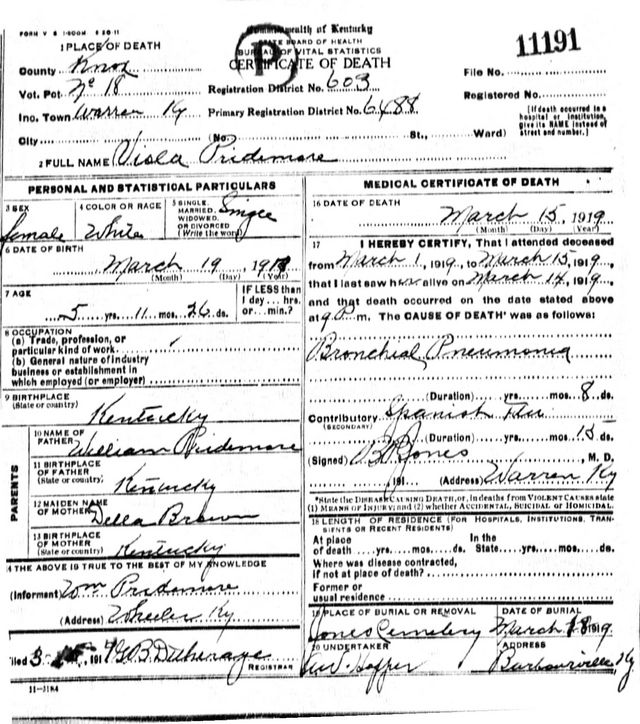 FORM V S 1-500M 8 20-11
Commonwealth of Kentucky
STATE BOARD OF HEALTH
BUREAU OF VITAL STATISTICS
CERTIFICATE OF DEATH
P
11191
1 PLACE OF DEATH
County Knox
Vot. Pct No 18
Inc. Town Warren Ky
City
Registration District No. 603
Primary Registration District No. 6488
(No. St., Ward)
File No.
Registered No.
[If death occurred in a hospital or institution, give its NAME instead of street and number.]
2 FULL NAME Viola Pridemore
PERSONAL AND STATISTICAL PARTICULARS
3 SEX
female
4 COLOR OR RACE
White
5 SINGLE, MARRIED, WIDOWED, OR DIVORCED (Write the word)
Single
6 DATE OF BIRTH
March 19, 191
(Month) (Day) (Year)
7 AGE
5 yrs. 11 mos. 26 ds.
IF LESS than 1 day... hrs. or... min.?
8 OCCUPATION
(a) Trade, profession, or
particular kind of work
(b) General nature of industry
business or establishment in
which employed (or employer)
9 BIRTHPLACE
(State or country)
Kentucky
PARENTS
10 NAME OF FATHER
William Pridemore
11 BIRTHPLACE OF FATHER
(State or country)
Kentucky
12 MAIDEN NAME OF MOTHER
Della Brown
13 BIRTHPLACE OF MOTHER
(State or country)
Kentucky
14 THE ABOVE IS TRUE TO THE BEST OF MY KNOWLEDGE
(Informant) Wm Pridemore
(Address) Wheeler Ky
Filed 3 191
REGISTRAR
11-3184
MEDICAL CERTIFICATE OF DEATH
16 DATE OF DEATH
March 15, 1919
(Month) (Day) (Year)
17 I HEREBY CERTIFY, That I attended deceased
from March 1, 1919, to March 15, 1919,
that I last saw her alive on March 14, 1919,
and that death occurred on the date stated above
at 9 P m. The CAUSE OF DEATH was as follows:
Bronchial Pneumonia
(Duration) yrs. mos. 8 ds.
Contributory Spanish Flu
(SECONDARY)
(Duration) yrs. mos. 15 ds.
(Signed) Jones, M. D.
191 (Address) Warren Ky
*State the DISEASE CAUSING DEATH, or, in deaths from VIOLENT CAUSES state
(1) MEANS OF INJURY; and (2) whether ACCIDENTAL, SUICIDAL or HOMICIDAL.
18 LENGTH OF RESIDENCE (FOR HOSPITALS, INSTITUTIONS, TRANSIENTS OR RECENT RESIDENTS)
At place
of death yrs. mos. ds.
In the
State yrs. mos. ds.
Where was disease contracted,
if not at place of death?
Former or
usual residence
19 PLACE OF BURIAL OR REMOVAL
Jones Cemetery
DATE OF BURIAL
March 18 1919
20 UNDERTAKER
ADDRESS
Barbourville, Ky